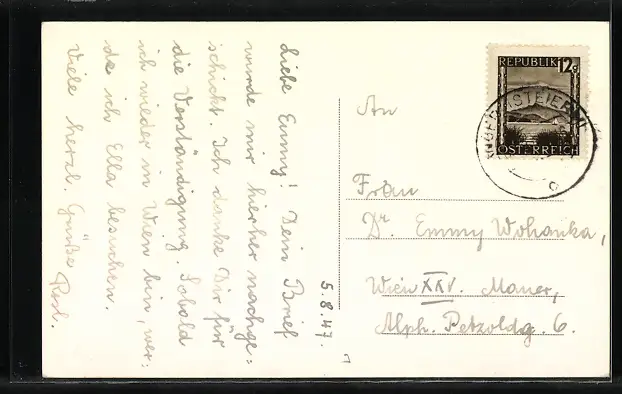 5.8.47.
Liebe Emmy! Dein Brief
wurde mir hierher nachge=
schickt. Ich danke Dir für
die Verständigung. Sobald
ich wieder in Wien bin, wer=
de ich Ella besuchen.
Viele herzl. Grüße
An
Frau
Dr. Emmy Wohanka,
Wien XXV. Mauer,
Alph. Petzoldg. 6.
REPUBLIK 12g
ÖSTERREICH